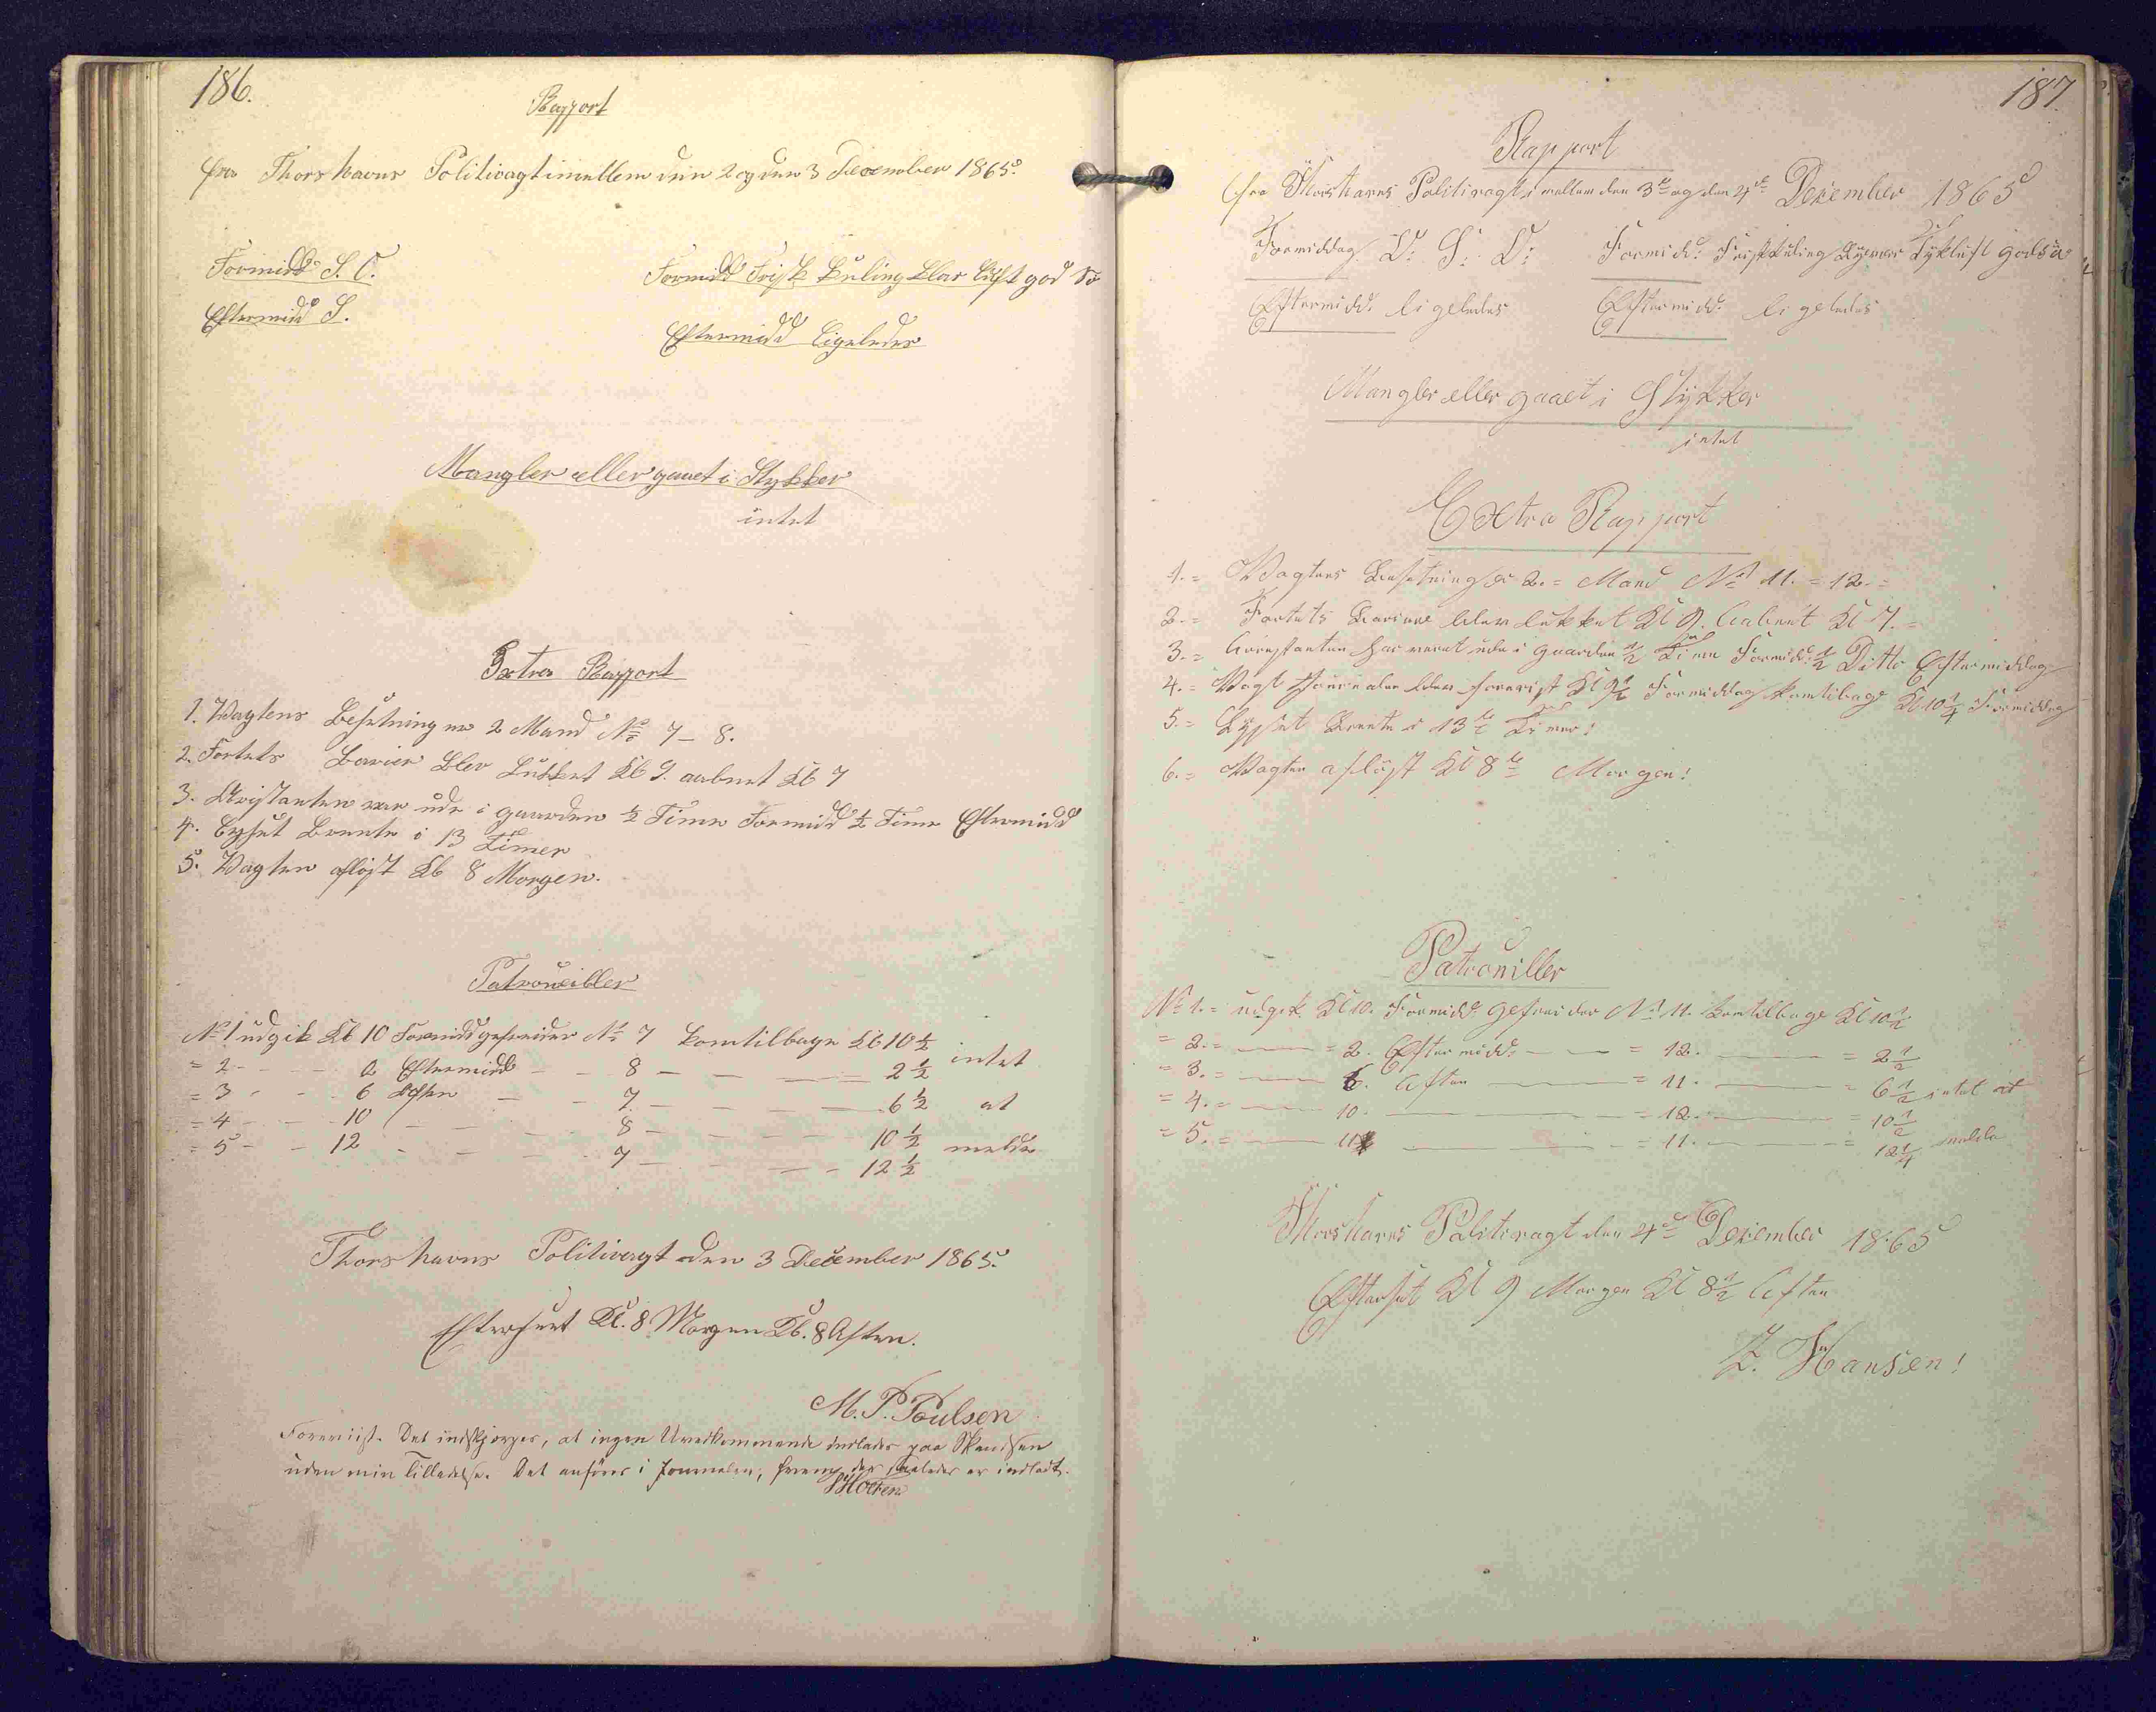 186.
Rapport
fra Thorshavns Politivagt imellem den 2 og den 3 December 1865.
Formidd S. O.
Formidd Frisk Kuling klar Luft god Sö
Eftermidd S.
Eftermidd Ligeledes
Mangler eller gaaet i Stykker
intet
Extra Rapport
1. Vagtens Besetning er 2 Mand No 7 - 8.
2. Fortets Barier blev Lukket Kl 9. aabnet Kl 7
3. Aristanten var ude i gaarden ½ Time Formidd ½ Time Eftermidd
4. Lyset brente i 13 Timer
5. Vagten aflöst Kl 8 Morgen.
Patrouiller
No 1 udgik Kl 10 Formidd gefreider No 7 kom tilbage Kl 10 ½
= 2 - - - 2 Eftermidd - - 8 - - - 2 ½ intet
= 3 - - - 6 Aften - - 7 - - - 6 ½ at
= 4 - - - 10 - - - 8 - - - 10 ½ melde
= 5 - - 12 - - - 7 - - - 12 ½
Thorshavns Politivagt den 3 December 1865.
Efterseet Kl. 8 Morgen Kl. 8 Aften.
M. P. Poulsen
Foreviist. Det indskjærpes, at ingen Uvedkommende indlades paa Skandsen
uden min Tilladelse. Det anföres i Journalen, hvem der saaledes er indladt.
Holten
187.
Rapport
fra Thorshavns Politivagt i mellem den 3de og den 4de Desember 1865
Formiddag O: S: O: Formidd: Friskkuling Tykluft god Sö
Eftermidd. ligeledes Eftermidd: ligeledes
Mangler eller gaaet i Stykker
intet
Extra Rapport
1. = Vagtens Besetning er 2. = Mand No 11. = 12. =
2. = Fortets Bariere blev lukket Kl 9. Aabent Kl 7. =
3. = Arrestanten har veret ude i gaarden ½ Time Formidd: ½ Ditto Eftermiddag
4. = Vagt Journalen blev forevist Kl 9½ Formiddag kom tilbage Kl 10¼ Formiddag
5. = Lyset brente i 13 Timer!
6. = Vagten aflöst Kl 8 Morgen!
Patrouiller
No 1. = udgik Kl 10. Formidd: gefreider No 11. kom tilbage Kl 10½
= 2. = — = 2. Eftermidd: — — = 12. — = 2½
= 3. = — 6. Aften — = 11. — = 6½ intet at
= 4. = — 10. — = 12. — = 10½
= 5. = — — = 11. — = 12¼ melde
Thorshavns Politivagt den 4de Desember 1865
Efterset Kl 9 Morgen Kl 8½ Aften
Z. Hansen!